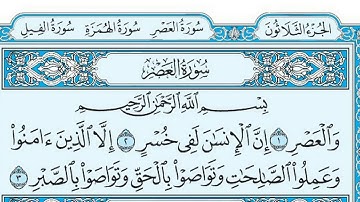 الجزء الثلاثون سورة العصر سورة الهمزة سورة الفيل
سورة العصر
بِسْمِ ٱللَّهِ ٱلرَّحْمَٰنِ ٱلرَّحِيمِ
وَٱلْعَصْرِ ١ إِنَّ ٱلْإِنسَٰنَ لَفِى خُسْرٍ ٢ إِلَّا ٱلَّذِينَ ءَامَنُوا۟
وَعَمِلُوا۟ ٱلصَّٰلِحَٰتِ وَتَوَاصَوْا۟ بِٱلْحَقِّ وَتَوَاصَوْا۟ بِٱلصَّبْرِ ٣